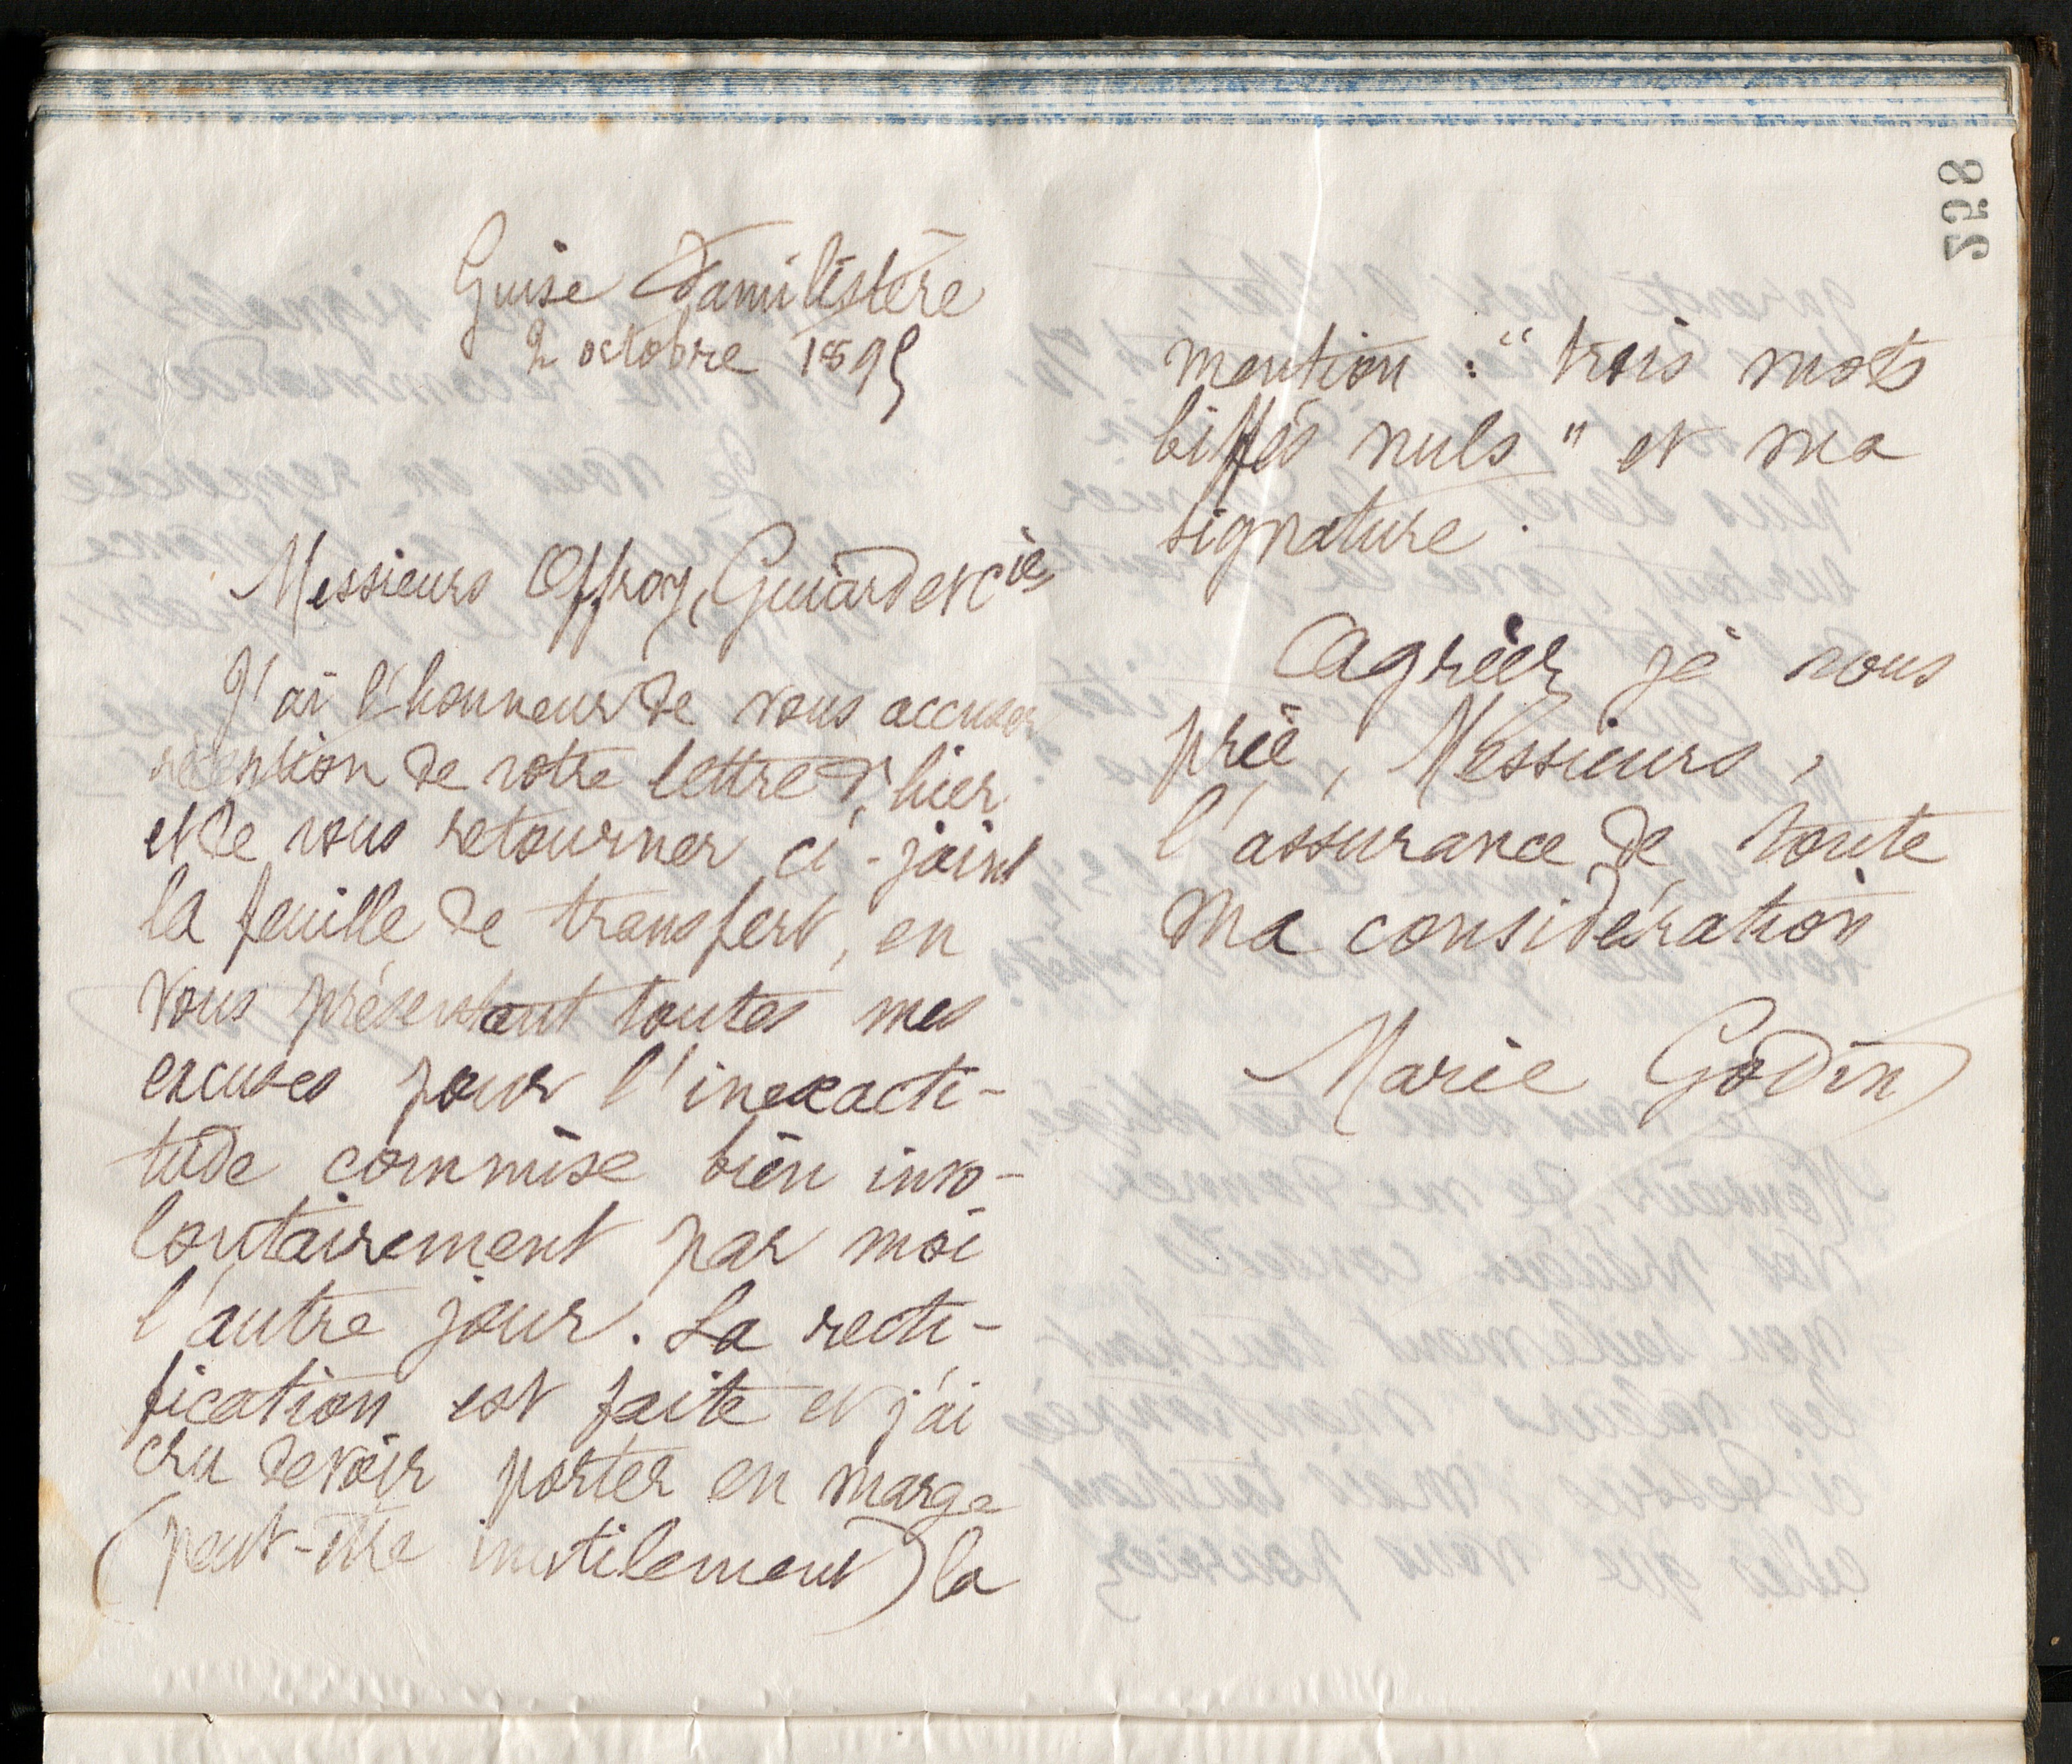 258
Guise Familistère
2 octobre 1895
Messieurs Offroy, Guiard et Cie,
J'ai l'honneur de vous accuser
réception de votre lettre d'hier
et de vous retourner ci-joint
la feuille de transfert, en
vous présentant toutes mes
excuses pour l'inexacti-
tude commise bien invo-
lontairement par moi
l'autre jour. La recti-
fication est faite et j'ai
cru devoir porter en marge
(peut-être inutilement) la
mention : " trois mots
biffés nuls " et ma
signature.
Agréez je vous
prie, Messieurs,
l'assurance de toute
ma considération
Marie Godin